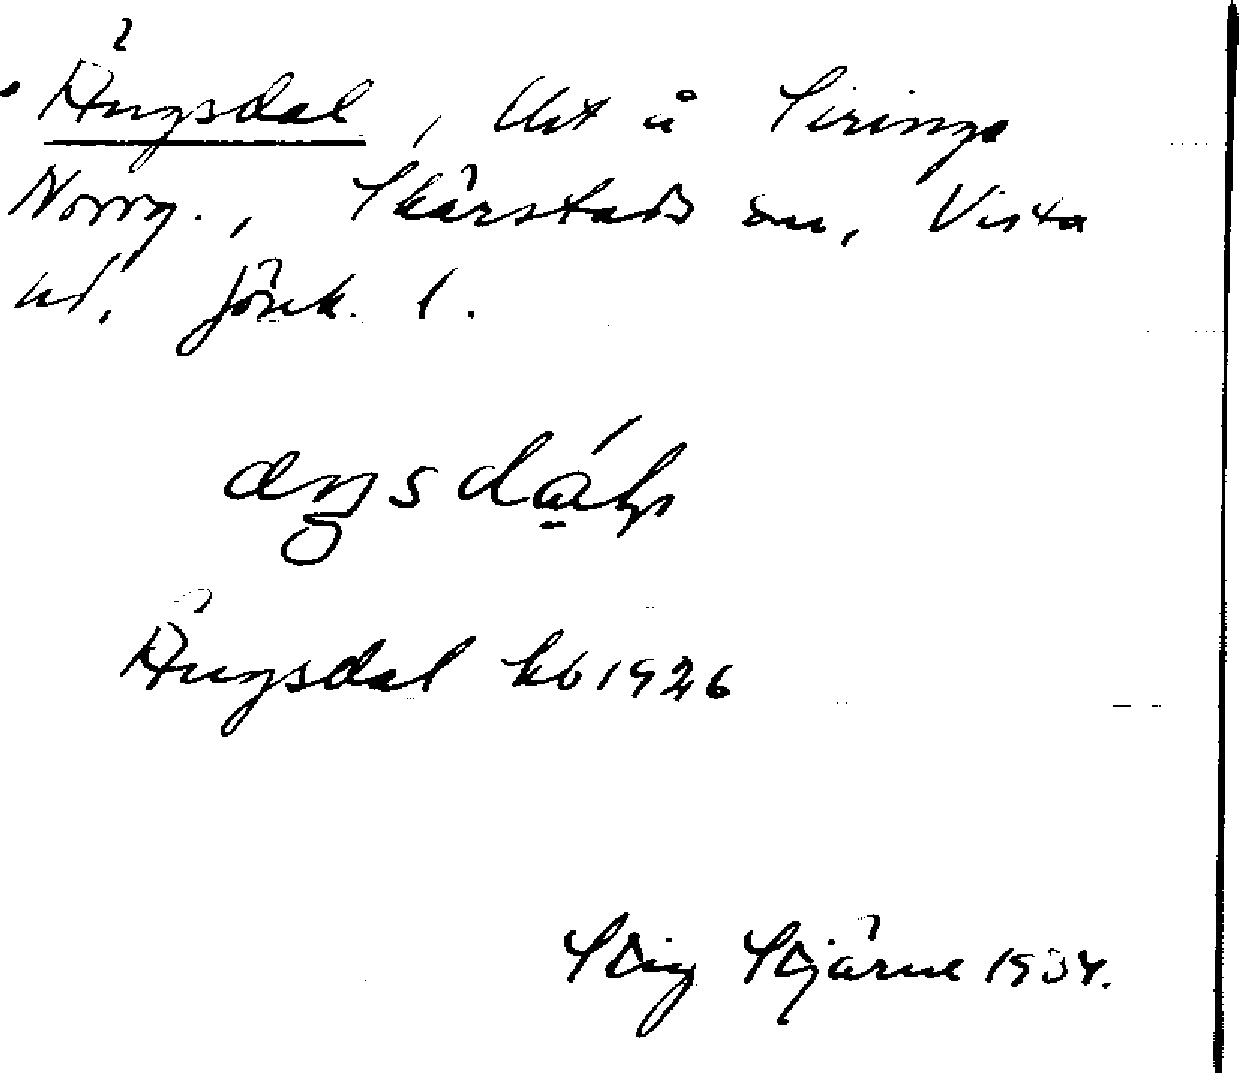 Ängsdal, Uet å Siringe
Norrg., Skärstads sn, Vista
hd. Jönk. l.
Ängsdal kb 1926
Stig Stjärne 1934.